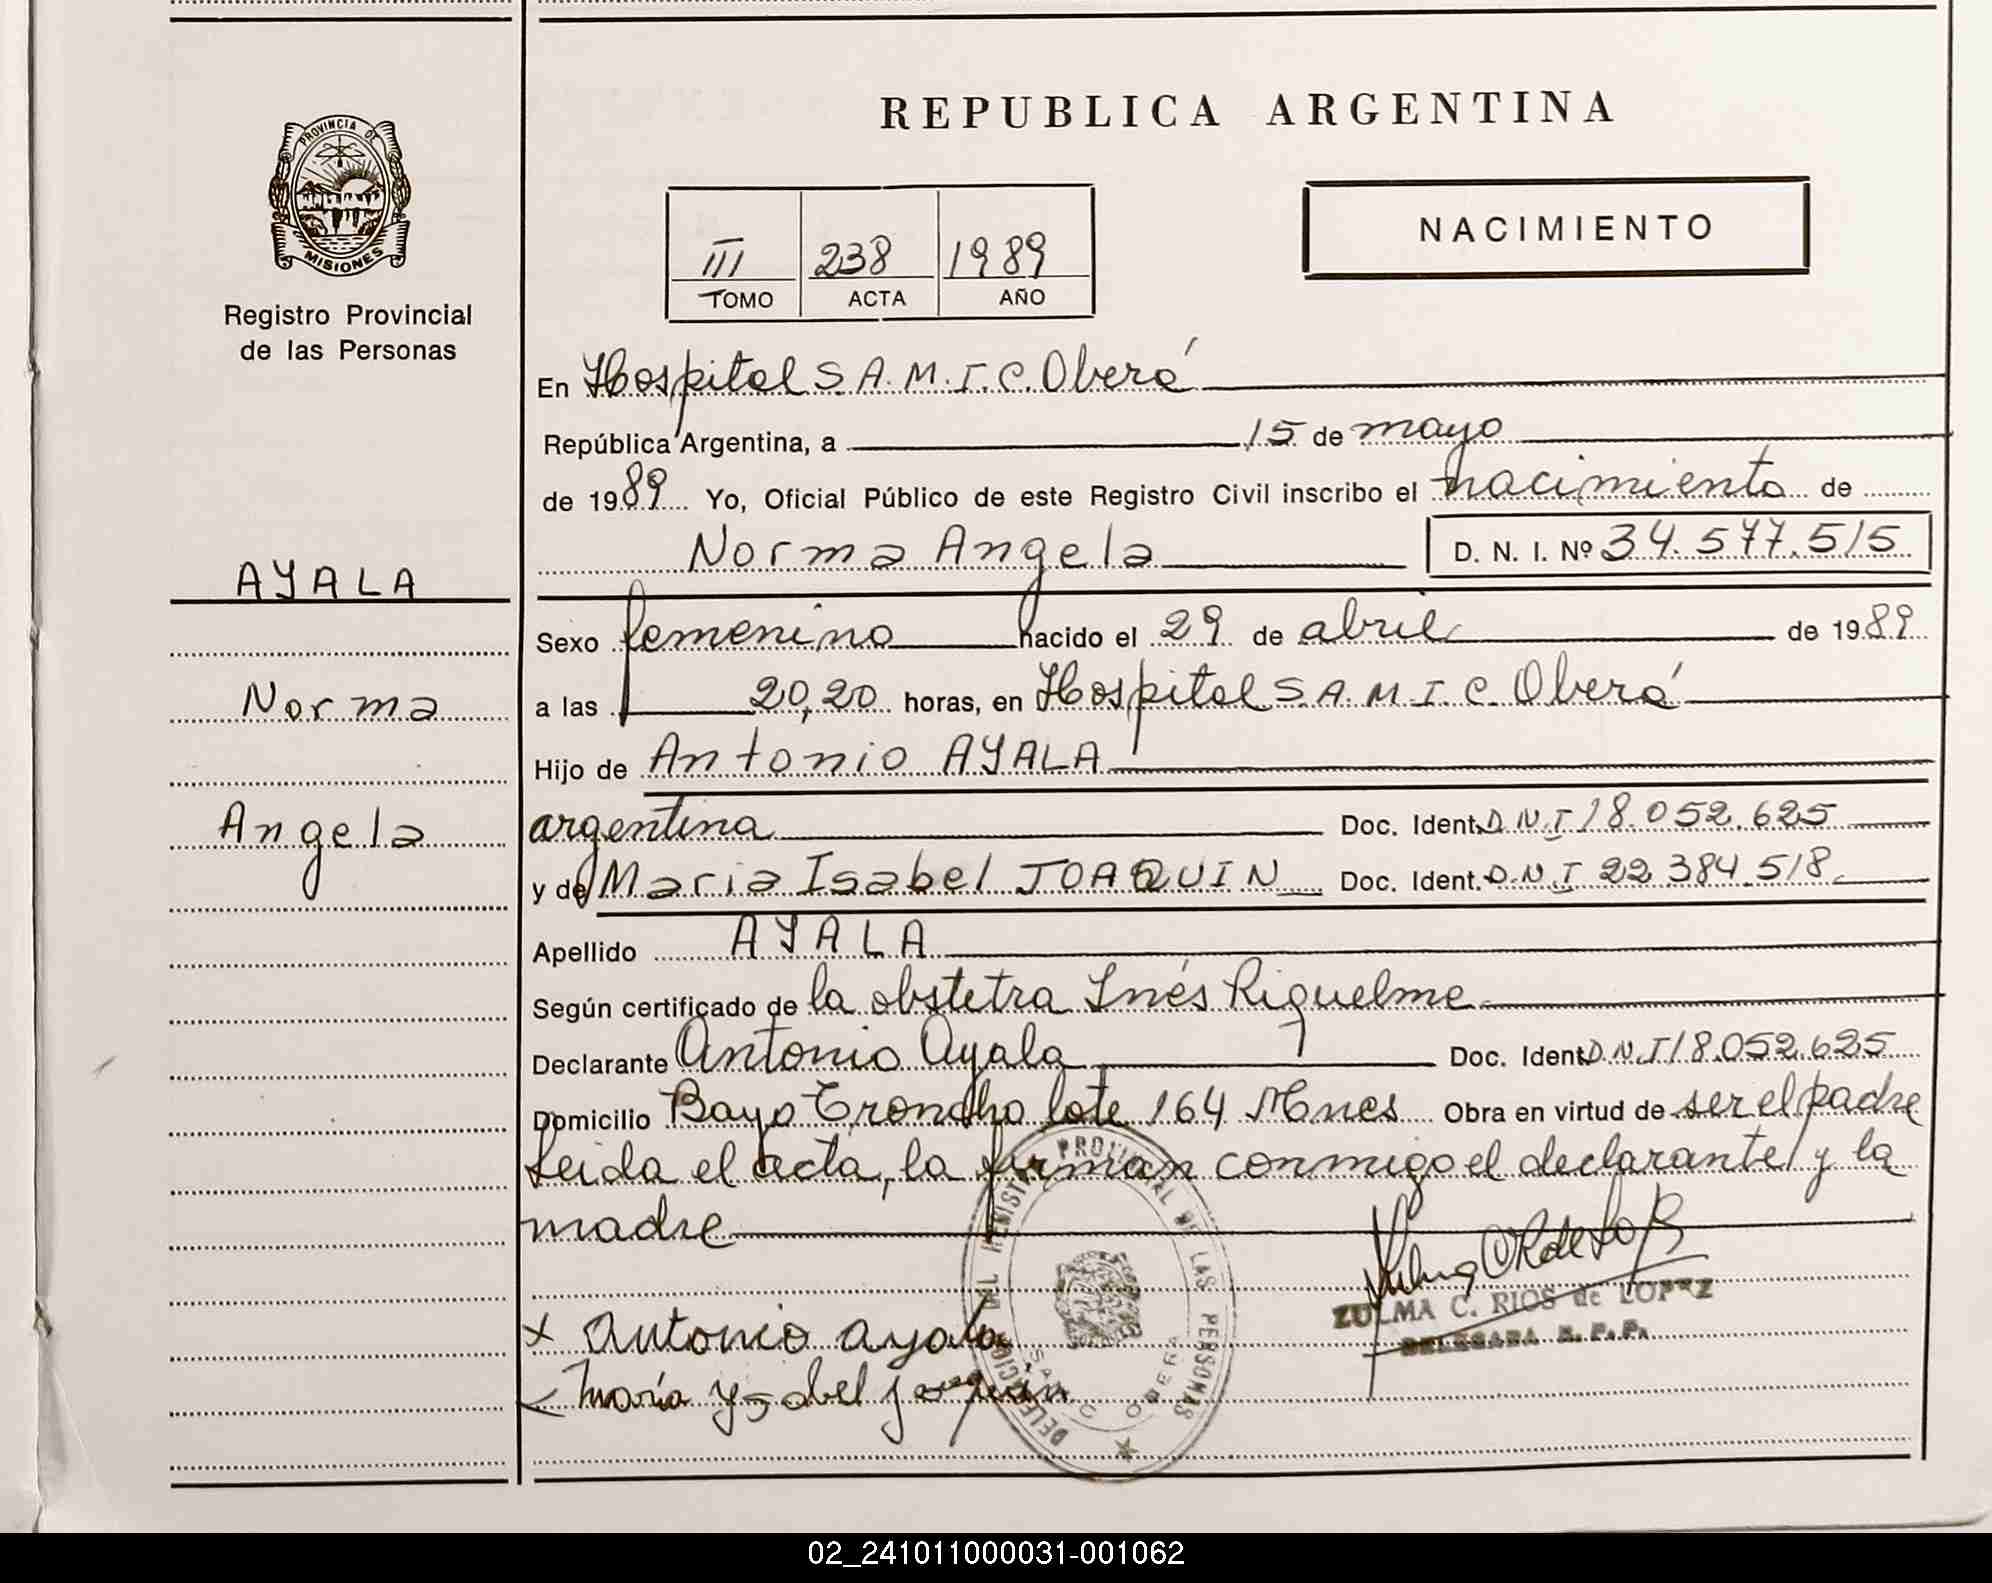 PROVINCIA DE
MISIONES
Registro Provincial
de las Personas
AYALA
Norma
Angela
REPUBLICA ARGENTINA
III 238 1989
TOMO ACTA AÑO
NACIMIENTO
En Hospital S.A.M.I.C. Oberá
República Argentina, a 15 de mayo
de 1989 Yo, Oficial Público de este Registro Civil inscribo el nacimiento de
Norma Angela D. N. I. Nº 34.577.515
Sexo femenino nacido el 29 de abril de 1989
a las 20,20 horas, en Hospital S.A.M.I.C. Oberá
Hijo de Antonio AYALA
argentina Doc. Ident. D.N.I 18.052.625
y de Maria Isabel JOAQUIN Doc. Ident. D.N.I 22.384.518
Apellido AYALA
Según certificado de la obstetra Inés Riquelme
Declarante Antonio Ayala Doc. Ident. D.N.I 18.052.625
Domicilio Bayo Troncho lote 164 Mnes Obra en virtud de ser el padre
Leida el acta, la firman conmigo el declarante y la
madre
x Antonio ayala
María Ysabel joaquín
PROVINCIAL DE LAS PERSONAS
OBERA
ZULMA C. RIOS de LOPEZ
DELEGADA R. P. P.
02_241011000031-001062